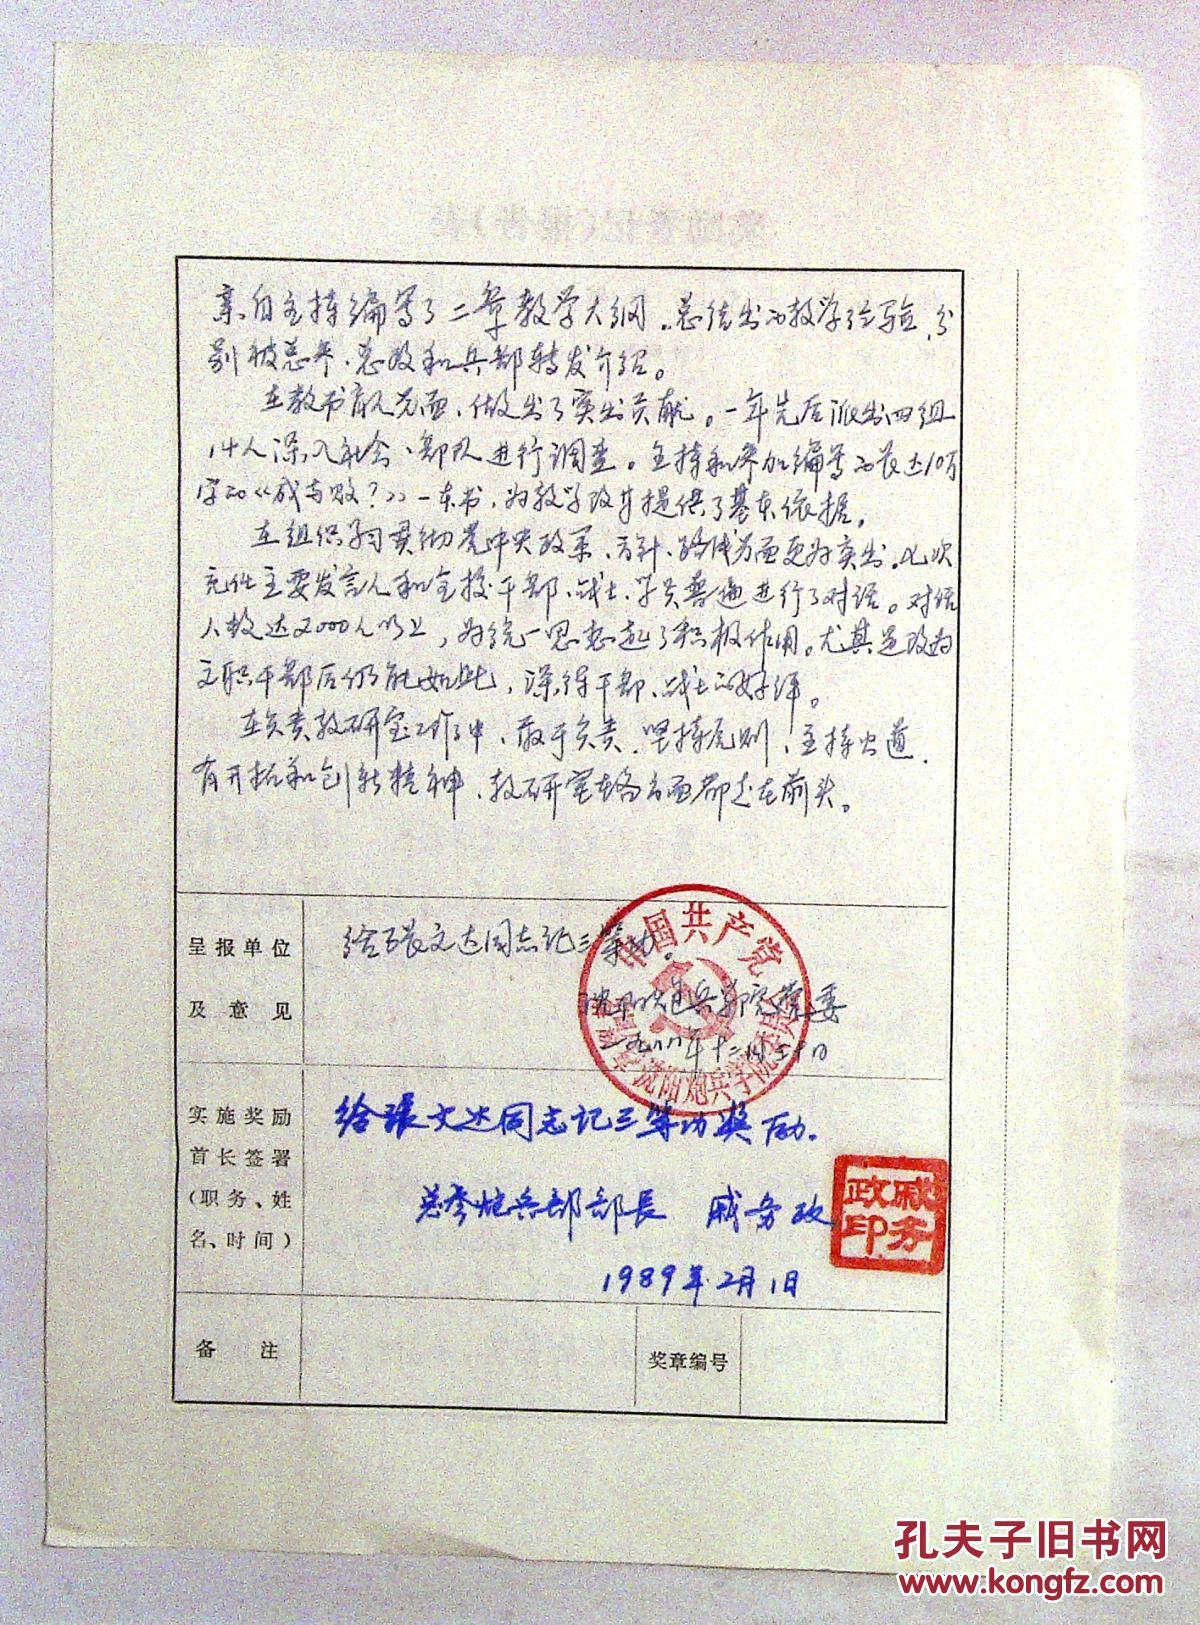 亲自主持编写了二章教学大纲。总结出的教学经验，分
别被总参、总政和兵部转发介绍。
在教书育人方面，做出了突出贡献。一年先后派出四组
14人深入社会、部队进行调查。主持和参加编写的长达10万
字的《成与败？》一本书，为教学改革提供了基本依据。
在组织学习贯彻党中央政策、方针、路线方面更为突出。此次
充任主要发言人和全校干部、战士、学员普遍进行了对话。对话
人数达2000人以上，为统一思想起了积极作用。尤其是改为
文职干部后仍能如此，深得干部、战士的好评。
在负责教研室工作中，敢于负责，坚持原则，主持公道，
有开拓和创新精神，教研室在各方面都走在前头。
呈报单位
及意见
给张文达同志记三等功。
沈阳炮兵学院党委
一九八八年十二月三十日
中国共产党
沈阳炮兵学院委员会
实施奖励
首长签署
（职务、姓
名、时间）
给张文达同志记三等功奖励。
总参炮兵部部长 戚务政
1989年2月1日
戚务
政印
备注
奖章编号
孔夫子旧书网
www.kongfz.com